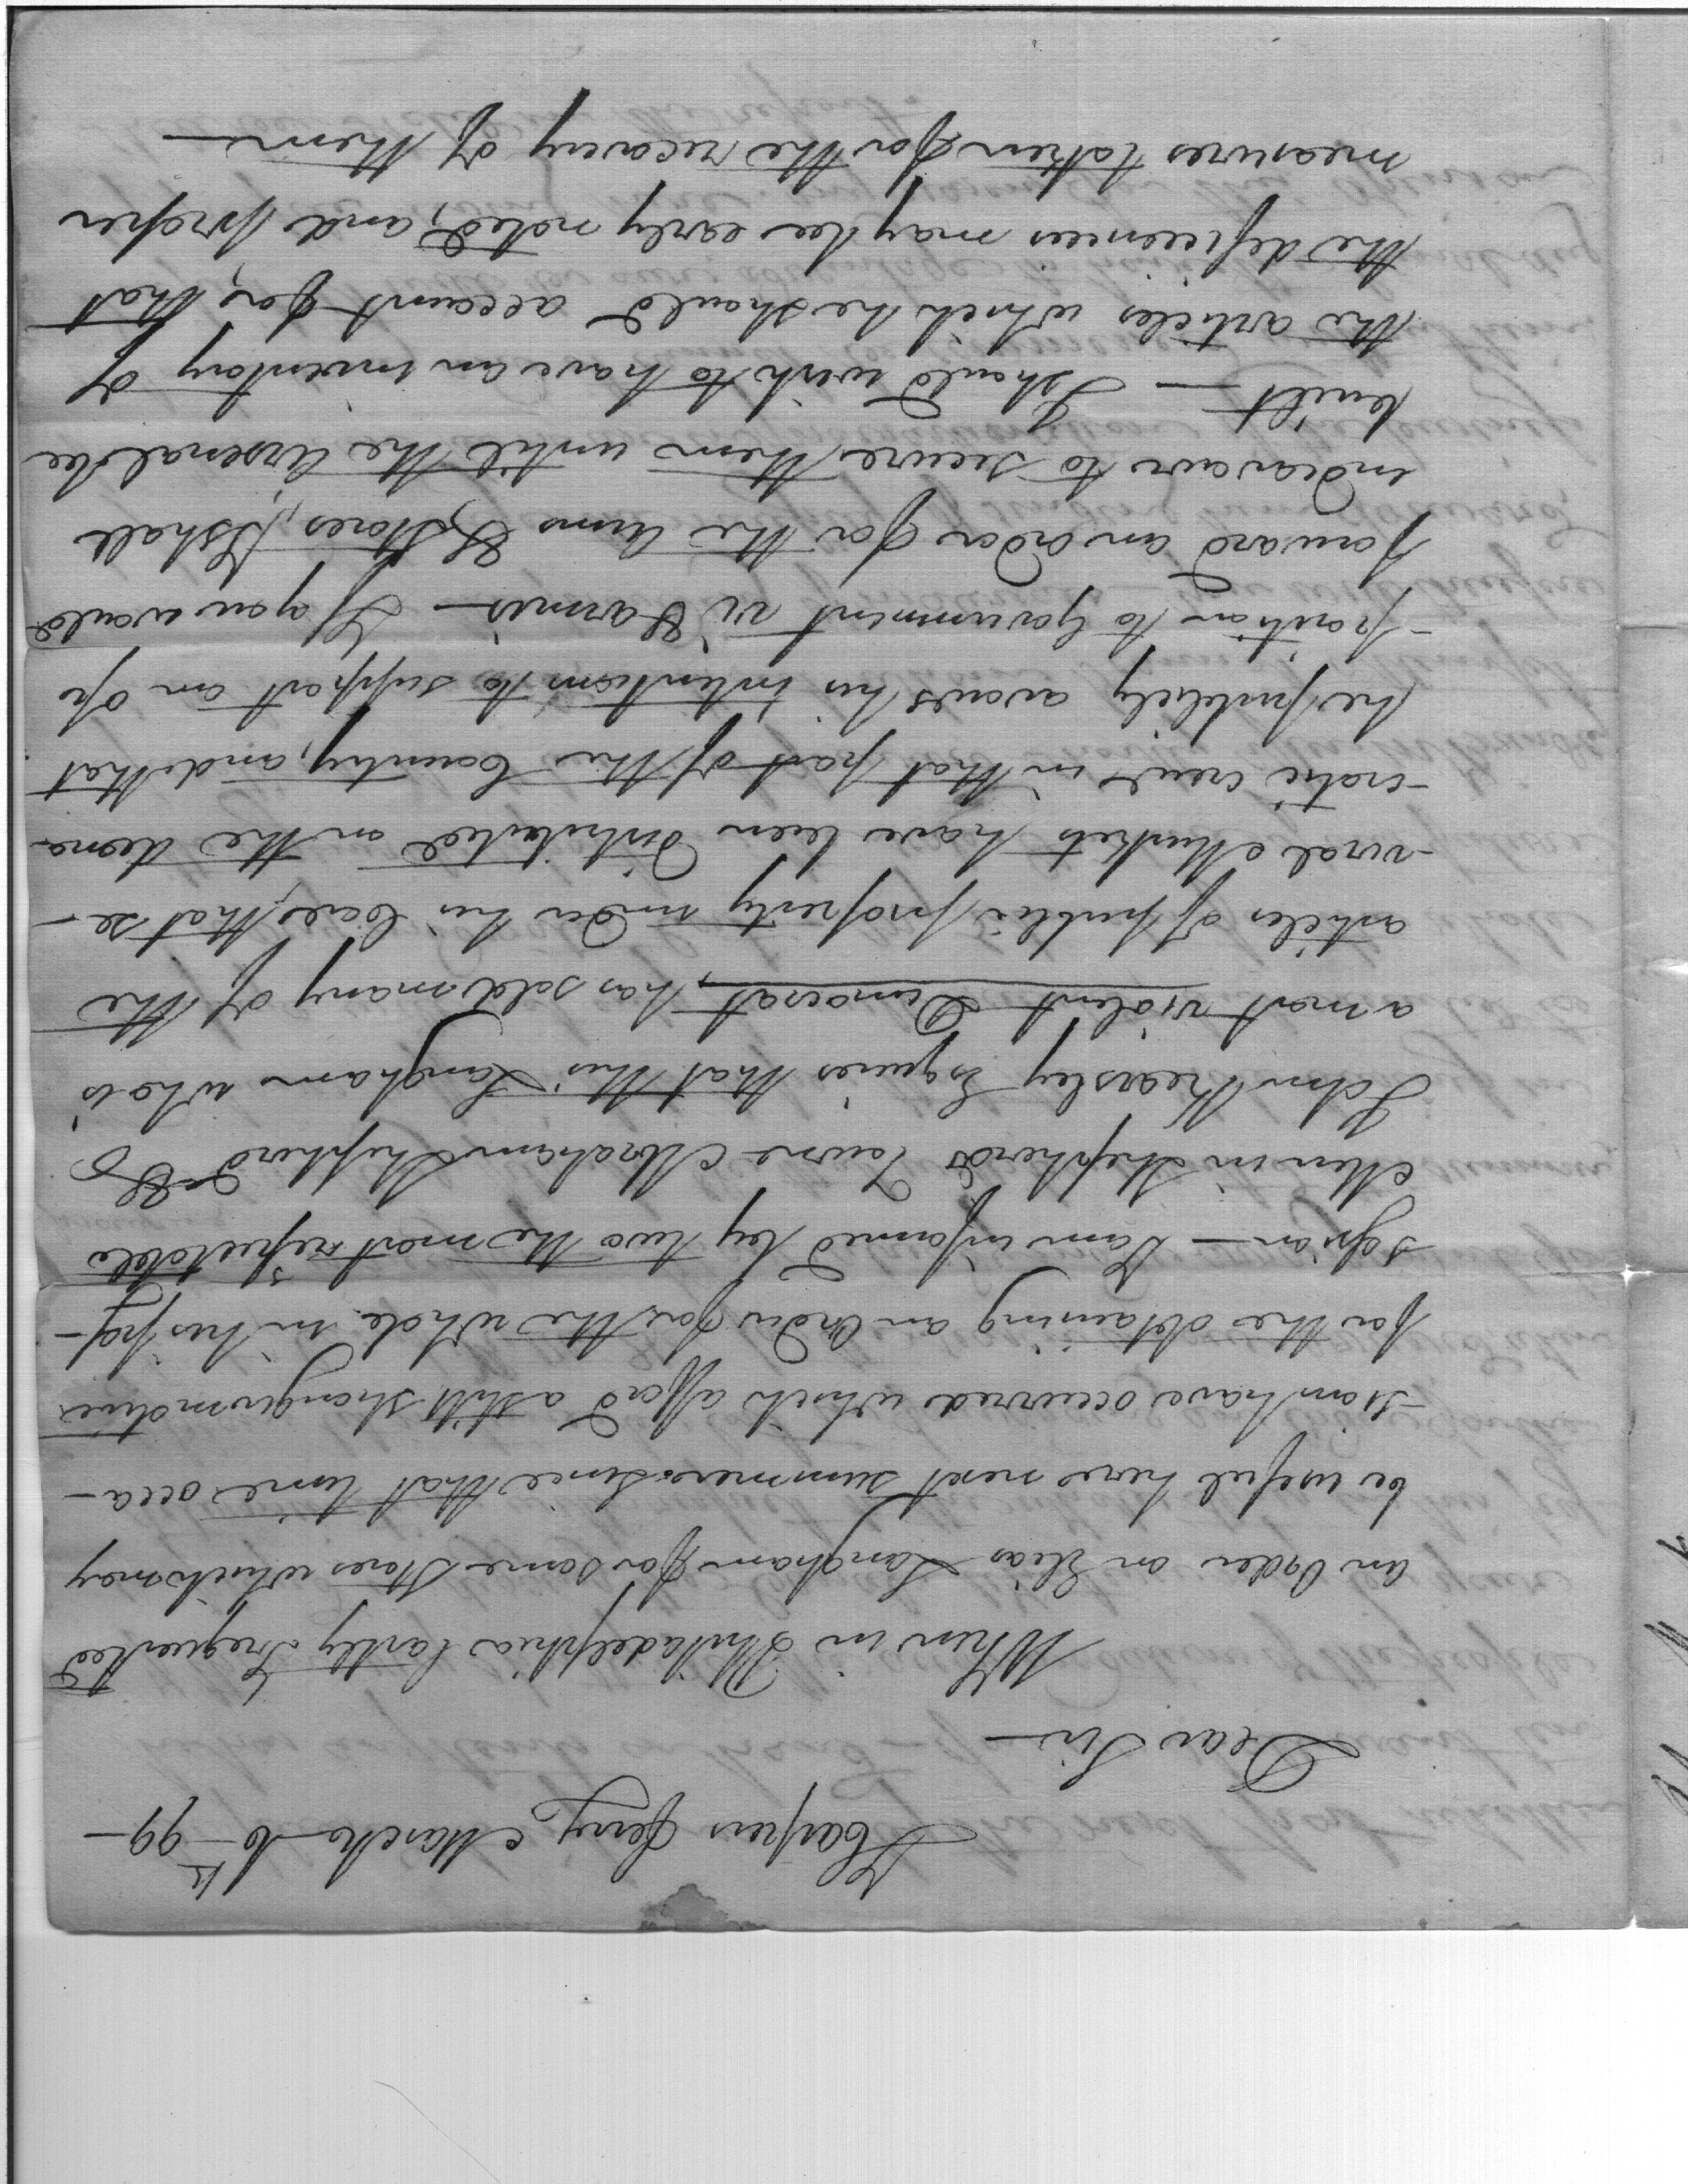 Harpers ferry March 6th 99 —
Dear Sir —
When in Philadelphia lastly I requested
an Order on Elias Langham for some Stores which may
be useful here next summer. Since that time occa-
-sions have occurred which afford a still stronger motive
for the obtaining an Order for the whole in his pos-
-session — I am informed by two the most respectable
Men in Shepherds Town Abraham Shepherd &
John Kearsley Esquires that this Langham who is
a most violent Democrat, has sold many of the
articles of public property under his care, that se-
-veral Muskets have been distributed on the demo-
-cratic crew in that part of the Country, and that
he publicly avows his intentions to support an op
-position to Government vi & armis — If you would
forward an order for the Arms & Stores, I shall
endeavour to secure them until the Arsenal be
built — I should wish to have an inventory of
the articles which he should account for, that
the deficiencies may be early noted, and proper
measures taken for the recovery of them —